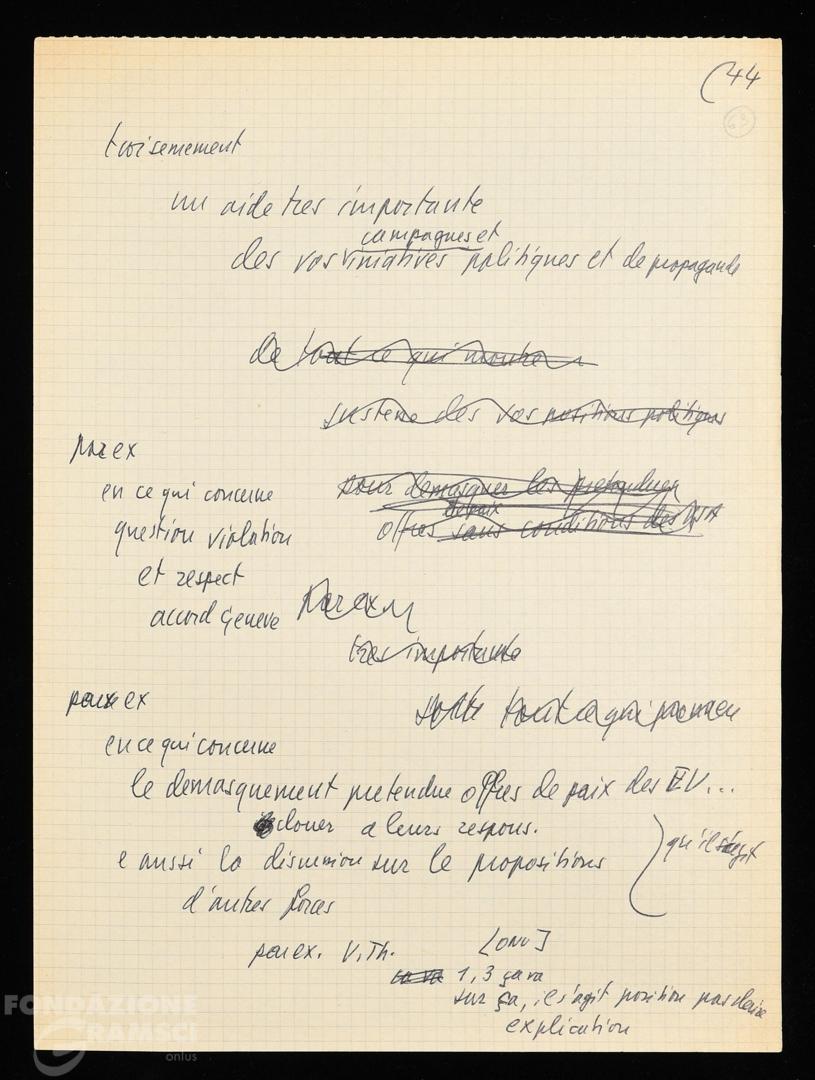 (44
63
troisemement
un aide tres importante
campagnes et
des vos iniatives politiques et de propagande
de tout ce qui montre
systeme des vos positions politiques
par ex
en ce qui concerne
pour demasquer les pretendues
de paix
question violation
offres sans conditions des USA
et respect
accord Geneve
Par ex
tres importante
par ex
tout ce qui
en ce qui concerne
le demasquement pretendue offres de paix des EU...
clouer a leurs respons.
qu'il s'agit
e aussi la discussion sur le propositions
d'autres forces
par ex. V. Th. [ONU]
ça va 1, 3 ça va
sur ça, il s'agit position pas claire
explication
FONDAZIONE
GRAMSCI
onlus